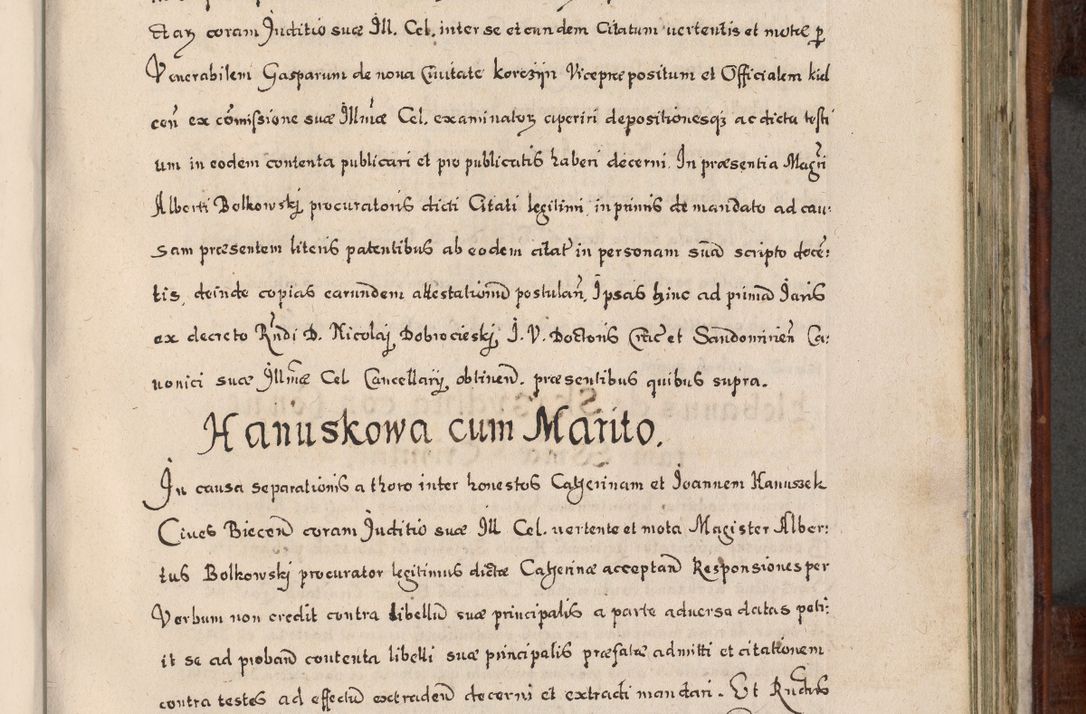 ctaȝ coram Juditio suæ Ill. Cel. inter se et eundem Citatum uertentis et motæ ꝑ
Venerabilem Gasparum de noua Ciuitate korczijn Vicepræpositum et Officialem kiel
ceñ ex com̃issione suæ Illm̃æ Cel. examinatoȝ aperiri depositionesqꝫ ac dicta testi
um in eodem contenta publicari et pro publicatis haberi decerni. In præsentia Magr̃i
Alberti Bolkowskj procuratoris dicti Citati legitimi, inprimis de mandato ad cau:
sam præsentem literis patentibus ab eodem citat̃ in personam suã scripto docẽ:
tis, deinde copias earundem attestationũ postulañ, Ipsas hinc ad primã Jaris
ex decreto Rñdi D. Nicolaj Dobrocieskj, J. V. Doctoris Crac̃ et Sandomirieñ Ca:
nonici suæ Illm̃æ Cel Cancellarij, obtineñ. præsentibus quibus supra.
Hanuskowa cum Marito.
In causa separationis a thoro inter honestos Catherinam et Joannem Hanuszek
Ciues Bieceñ coram Juditio suæ Ill Cel. uertente et mota Magister Alber:
tus Bolkowskj procurator legitimus dictæ Catherinæ acceptañ Responsiones per
Verbum non credit contra libellũ suæ principalis a parte aduersa datas peti:
it se ad probañ contenta libelli suæ principalis præfatæ admitti et citationem
contra testes ad effectũ extradeñ decerni et extradi mandari. Et Rñdus